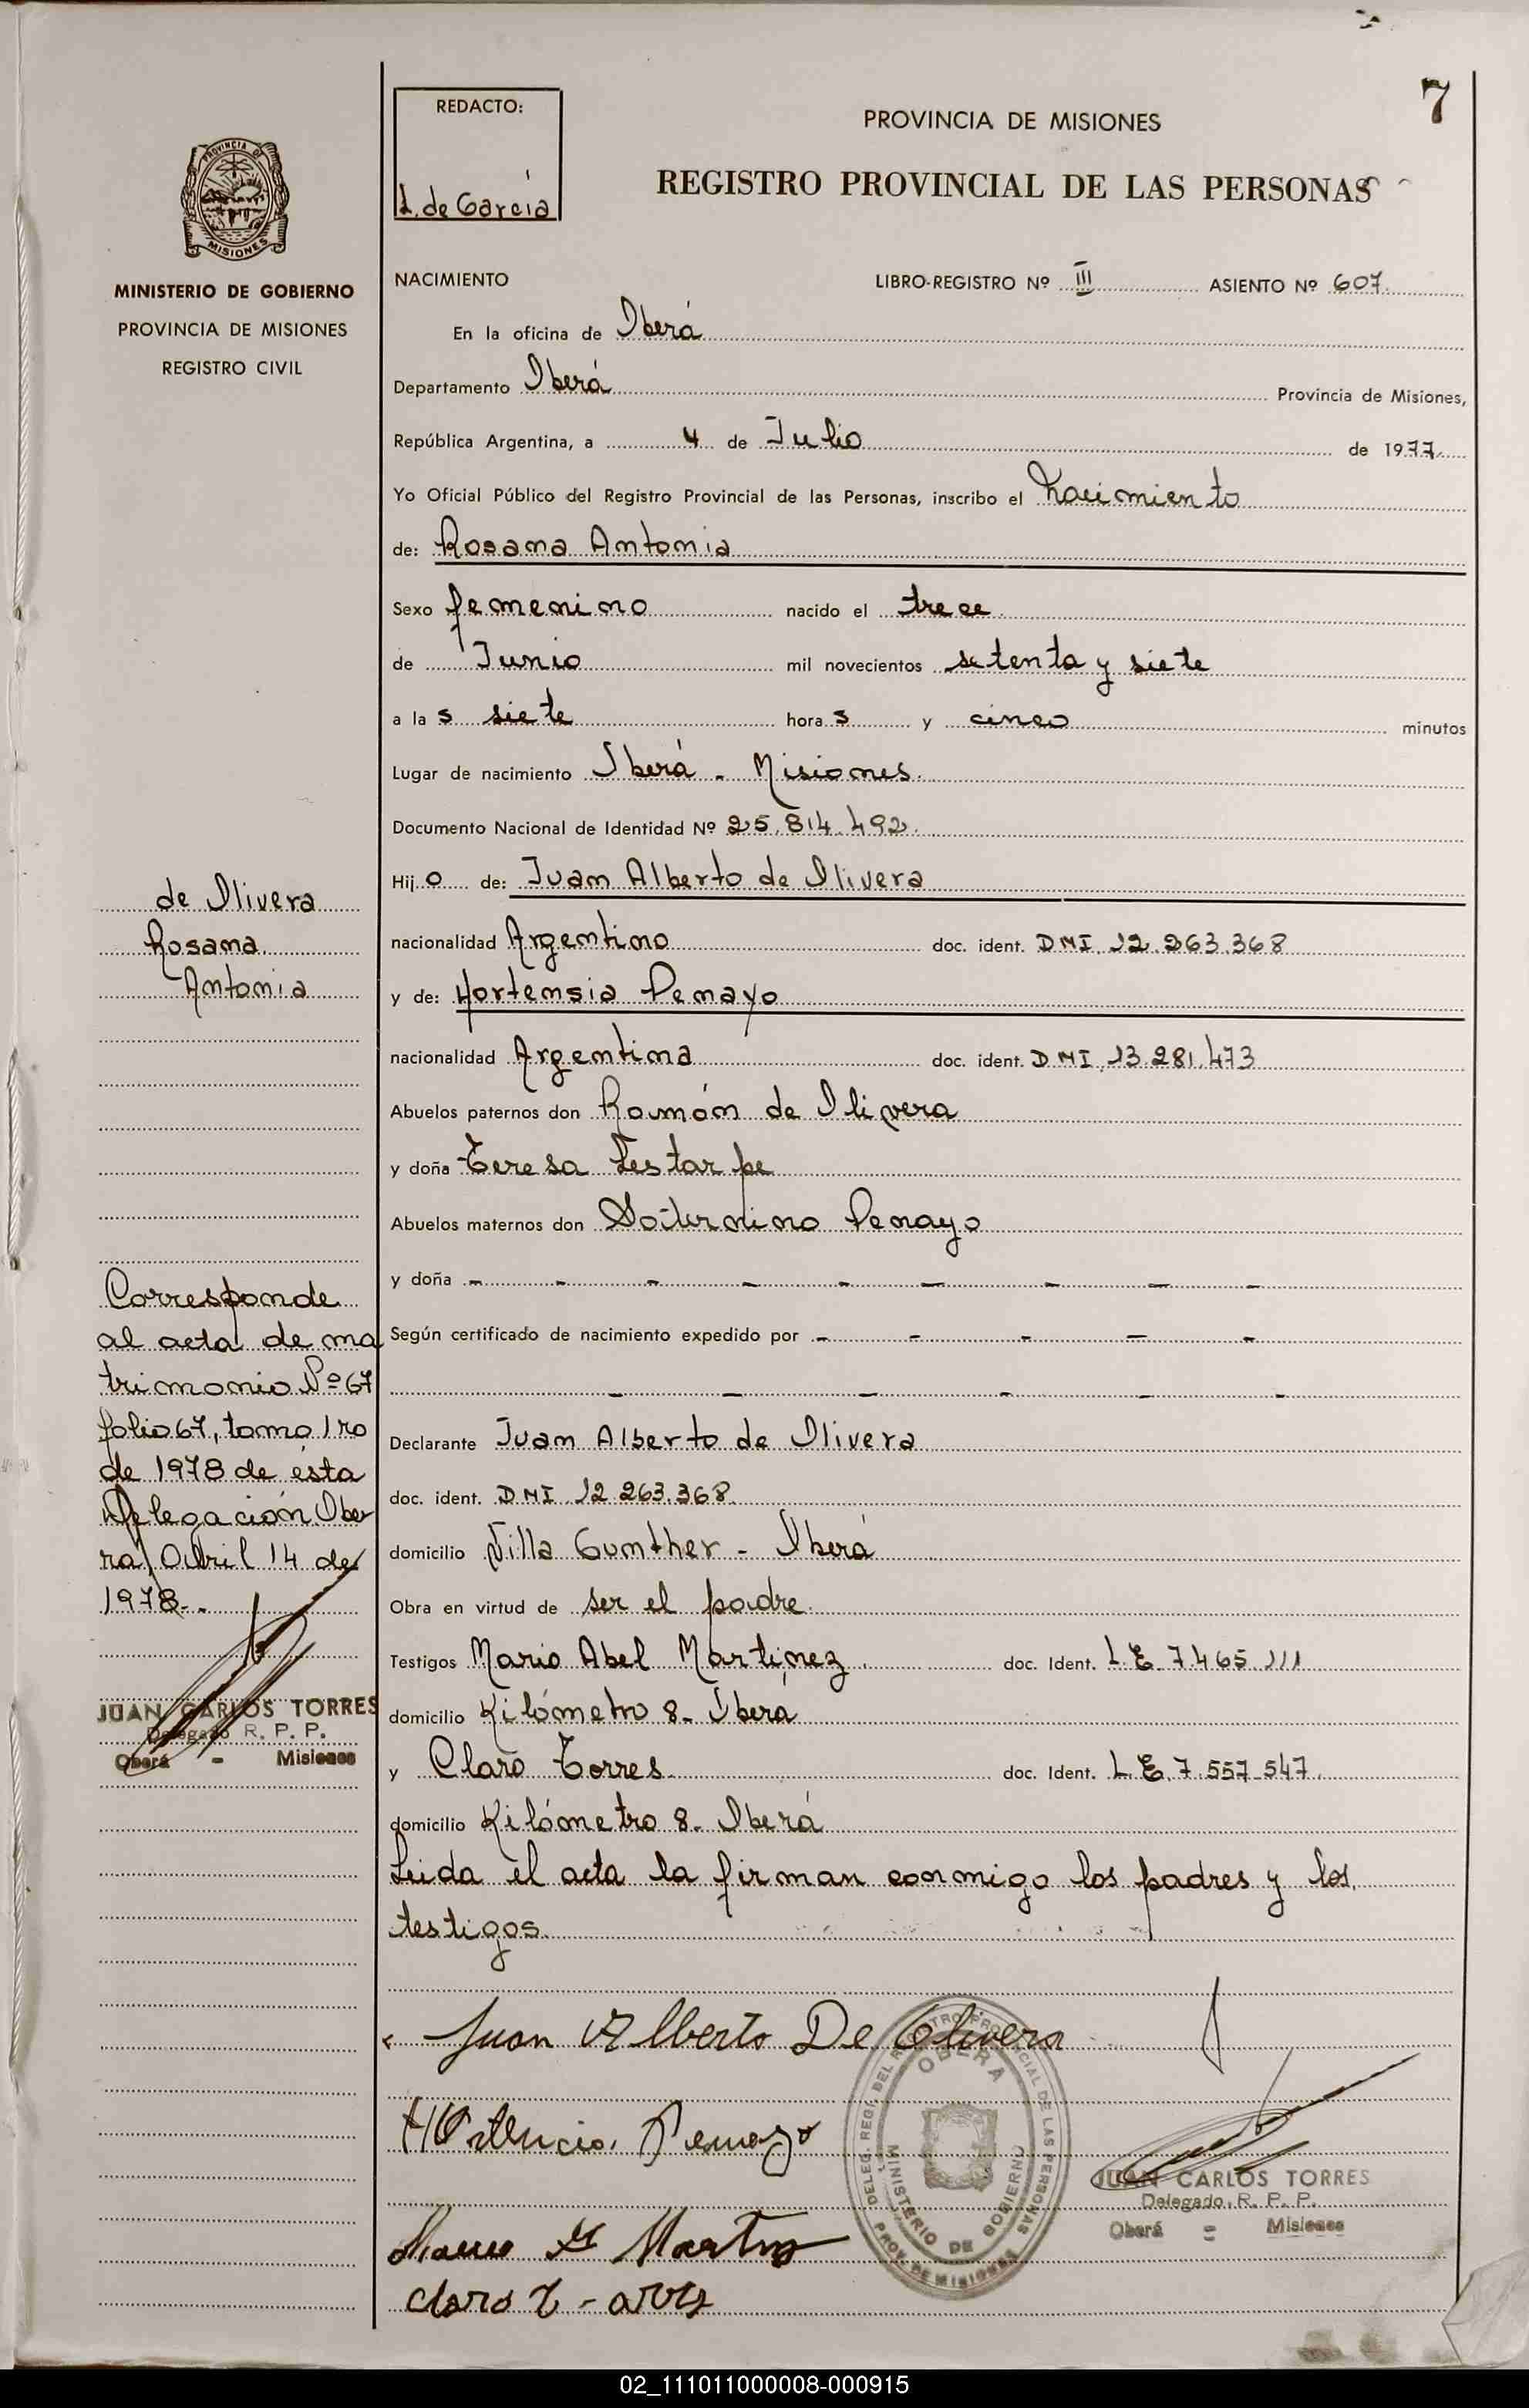 7
REDACTO:
L. de García
PROVINCIA DE MISIONES
REGISTRO PROVINCIAL DE LAS PERSONAS
PROVINCIA DE
MISIONES
MINISTERIO DE GOBIERNO
PROVINCIA DE MISIONES
REGISTRO CIVIL
NACIMIENTO LIBRO-REGISTRO Nº III ASIENTO Nº 607
En la oficina de Oberá
Departamento Oberá Provincia de Misiones,
República Argentina, a 4 de Julio de 1977
Yo Oficial Público del Registro Provincial de las Personas, inscribo el nacimiento
de: Rosana Antonia
Sexo femenino nacido el trece
de Junio mil novecientos setenta y siete
a las siete horas y cinco minutos
Lugar de nacimiento Oberá - Misiones.
Documento Nacional de Identidad Nº 25.814.492.
Hijo de: Juan Alberto de Olivera
nacionalidad Argentino doc. ident. DNI 12.263.368
y de: Hortensia Penayo
nacionalidad Argentina doc. ident. DNI 13.281.473
Abuelos paternos don Ramón de Olivera
y doña Teresa
Abuelos maternos don Saturnino Penayo
y doña - - - - - - - - -
Según certificado de nacimiento expedido por - - - - -
- - - - - -
Declarante Juan Alberto de Olivera
doc. ident. DNI 12.263.368
domicilio Villa Gunther - Oberá
Obra en virtud de ser el padre.
Testigos Mario Abel Martinez doc. Ident. L.E. 7.465.111
domicilio Kilómetro 8- Oberá
y Claro Torres doc. Ident. L.E. 7.557.547
domicilio Kilómetro 8- Oberá
Leida el acta la firman conmigo los padres y los
testigos.
de Olivera
Rosana
Antonia
Corresponde
al acta de ma
trimonio Nº 67
folio 67, tomo 1ro
de 1978 de ésta
Delegación Obe
rá, Abril 14 de
1978.-
JUAN CARLOS TORRES
Delegado R. P. P.
Oberá - Misiones
Juan Alberto De Olivera
Hortencia Penayo
OBERA
DELEG. REGI. DEL REGISTRO PROVINCIAL DE LAS PERSONAS
MINISTERIO DE GOBIERNO
PROV. DE MISIONES
JUAN CARLOS TORRES
Delegado R. P. P.
Oberá - Misiones
02_111011000008-000915